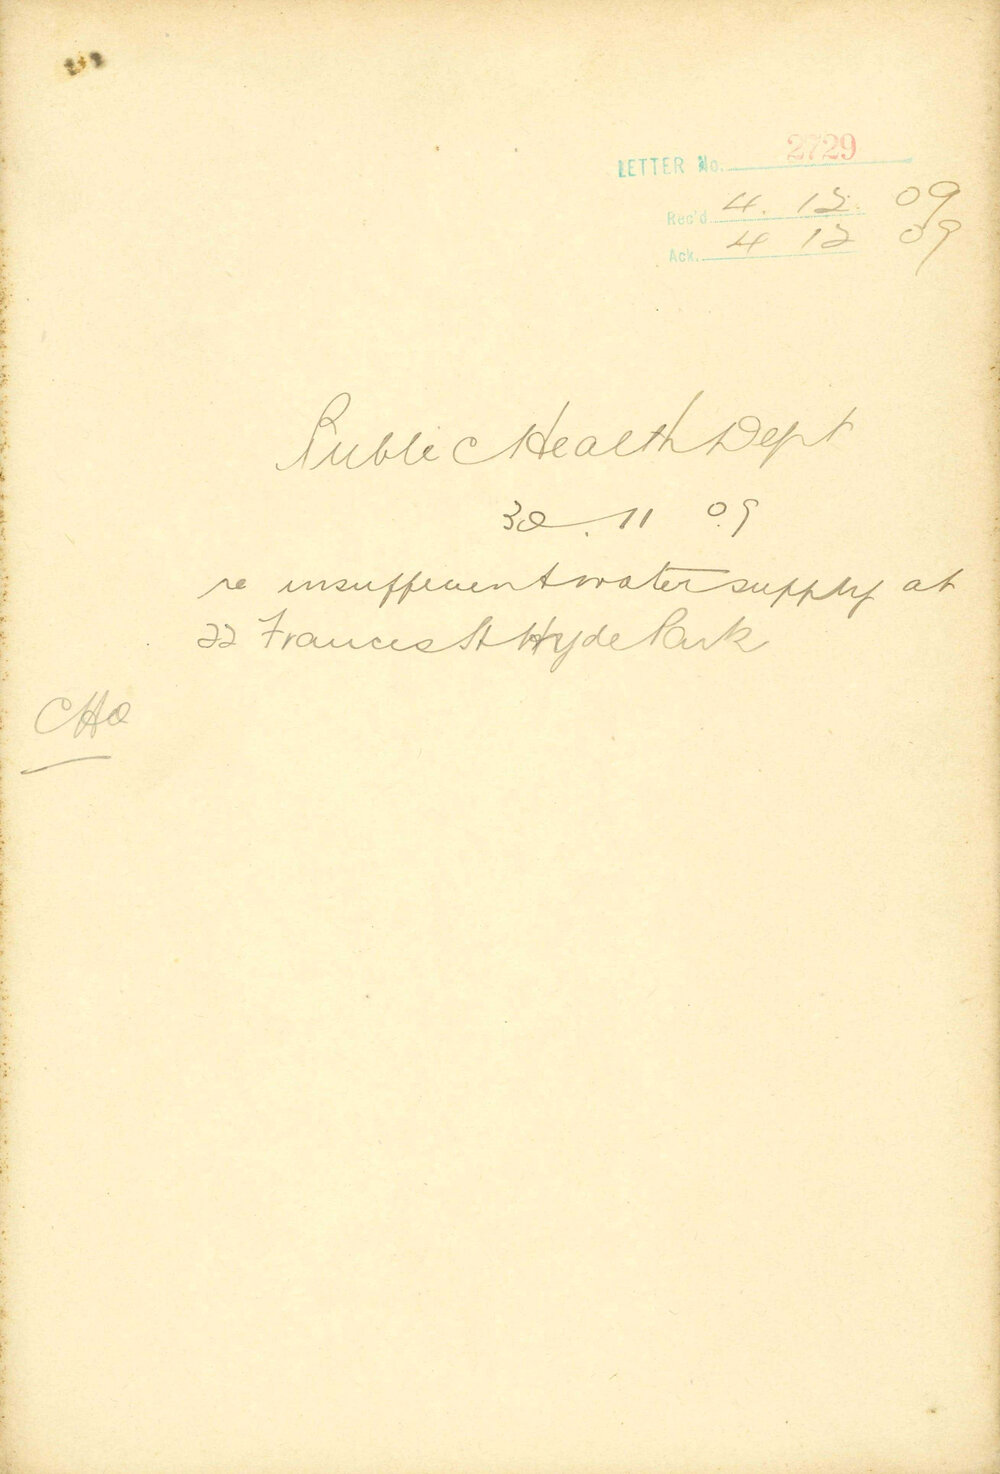 LETTER No. 2729
Rec'd 4. 12. 09
Ack. 4 12 09
Public Health Dept
30. 11 09
re insufficient water supply at
22 Frances St Hyde Park
CHO